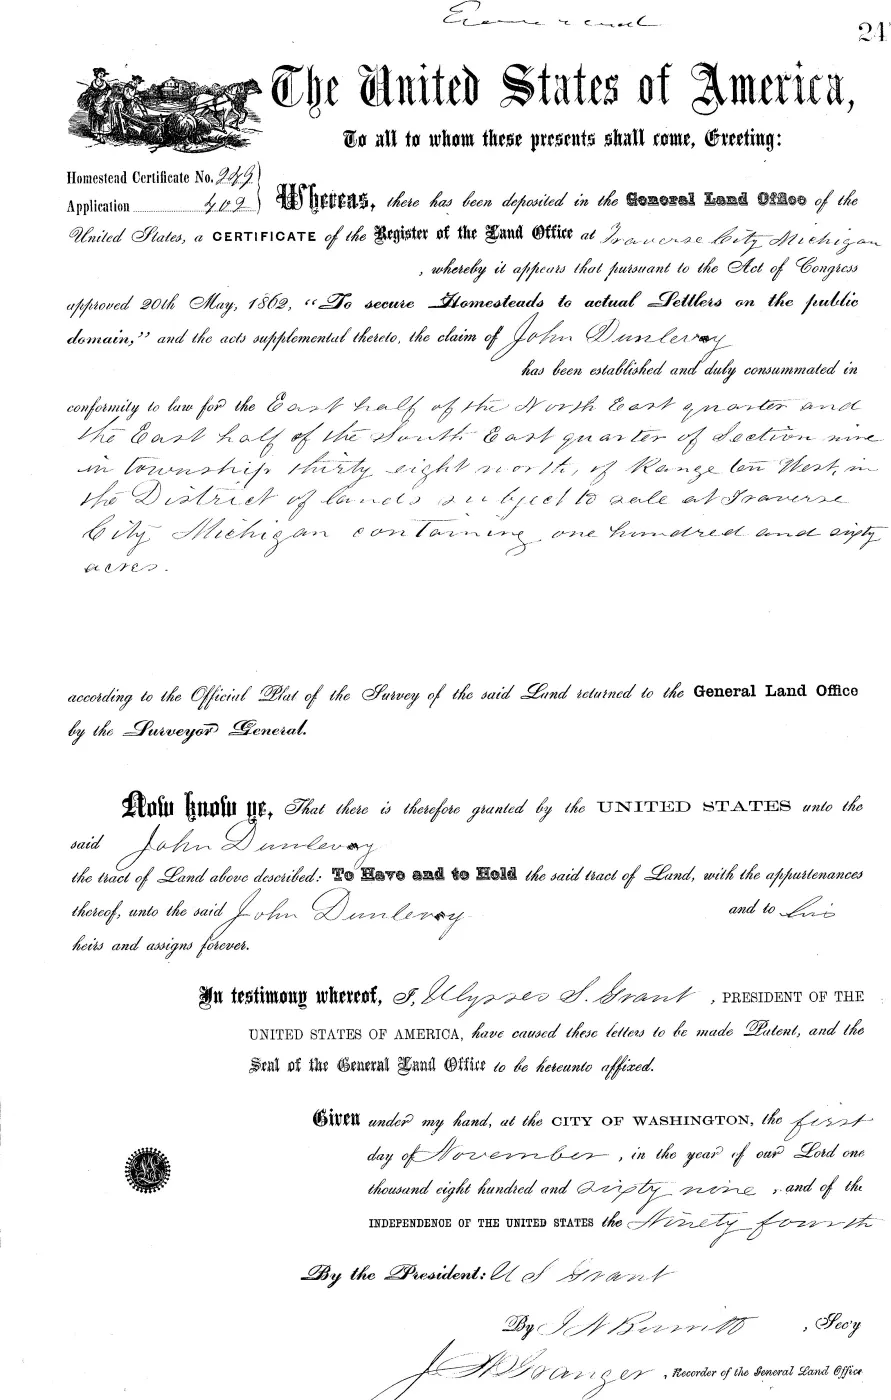 Examined
24
The United States of America,
To all to whom these presents shall come, Greeting:
Homestead Certificate No. 249
Application 402
Whereas, there has been deposited in the General Land Office of the
United States, a CERTIFICATE of the Register of the Land Office at Traverse City Michigan
, whereby it appears that pursuant to the Act of Congress
approved 20th May, 1862, "To secure Homesteads to actual Settlers on the public
domain," and the acts supplemental thereto, the claim of John Dunlevoy
has been established and duly consummated in
conformity to law for the East half of the North East quarter and
the East half of the South East quarter of Section nine
in township thirty eight north, of Range ten West, in
the District of lands subject to sale at Traverse
City Michigan containing one hundred and sixty
acres.
according to the Official Plat of the Survey of the said Land returned to the General Land Office
by the Surveyor General.
Now know ye, That there is therefore granted by the UNITED STATES unto the
said John Dunlevoy
the tract of Land above described: To Have and to Hold the said tract of Land, with the appurtenances
thereof, unto the said John Dunlevoy and to his
heirs and assigns forever.
In testimony whereof, I, Ulysses S. Grant, PRESIDENT OF THE
UNITED STATES OF AMERICA, have caused these letters to be made Patent, and the
Seal of the General Land Office to be hereunto affixed.
Given under my hand, at the CITY OF WASHINGTON, the first
day of November, in the year of our Lord one
thousand eight hundred and sixty nine, and of the
INDEPENDENCE OF THE UNITED STATES the Ninety fourth
By the President: U S Grant
By , Sec'y
Granger, Recorder of the General Land Office